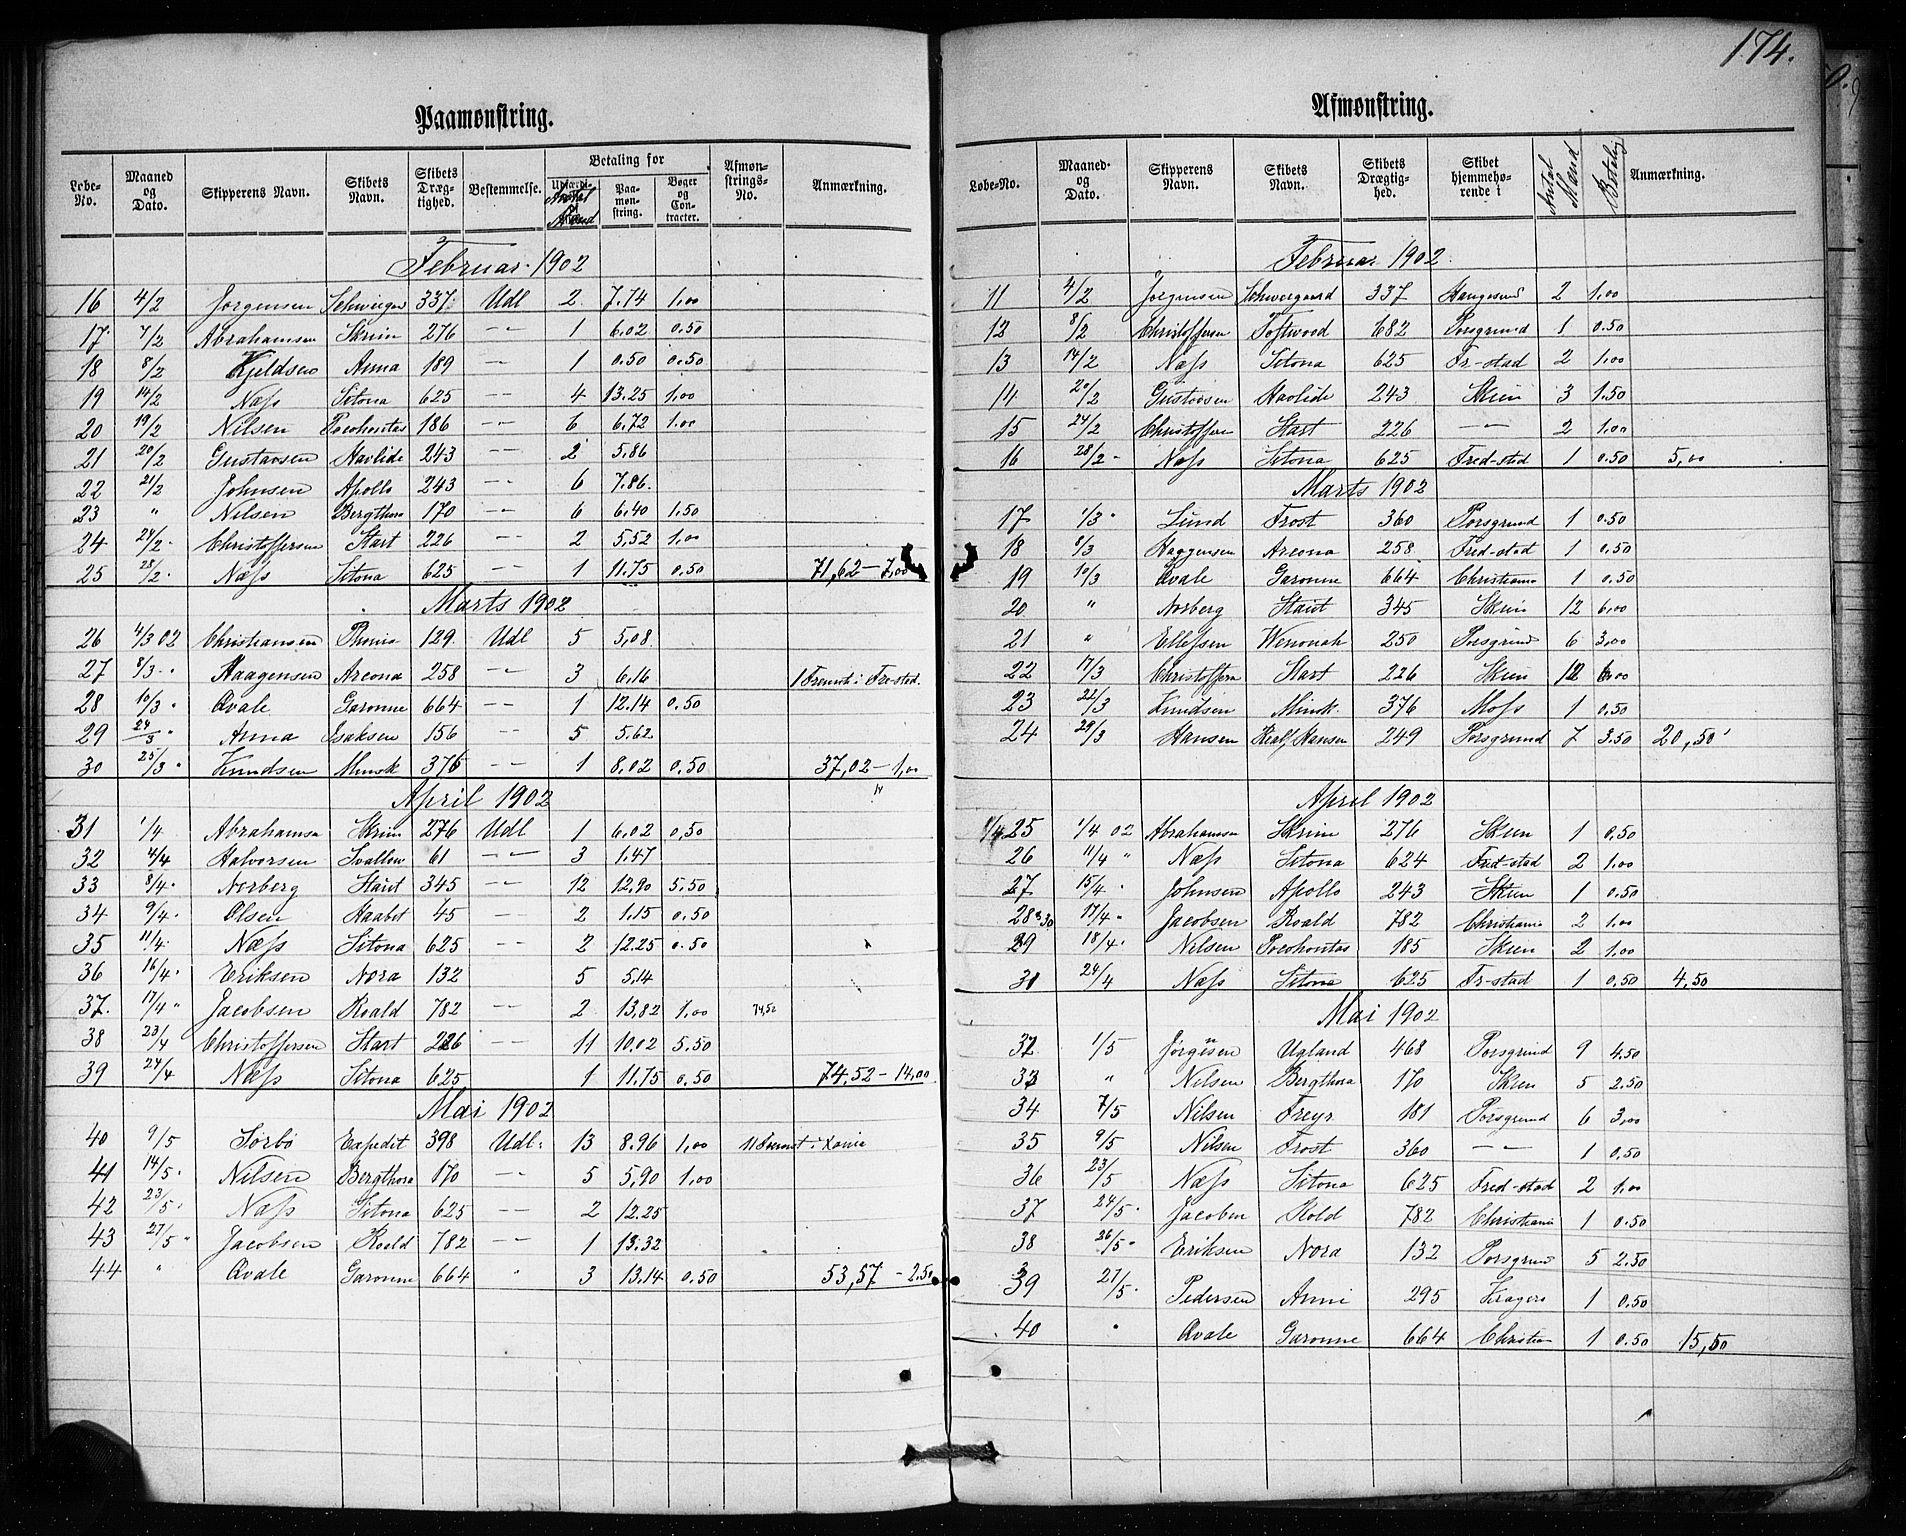 174.
Paamønstring.
Løbe-No. Maaned og Dato. Skipperens Navn. Skibets Navn. Skibets Drægtighed. Bestemmelse. Betaling for Antal Mænd Paamønstring. Bøger og Contracter. Afmønstrings-No. Anmærkning.
Februar 1902
16 4/2 Jørgensen 337 Udl 2 7.74 1,00
17 7/2 Abrahamsen Skrim 276 -"- 1 6.02 0.50
18 8/2 Kjeldsen Anna 189 -"- 1 0.50 0.50
19 14/2 Næss Sitona 625 -"- 4 13.25 1.00
20 19/2 Nilsen Pocohontas 186 -"- 6 6.72 1.00
21 20/2 Gustavsen Havlide 243 -"- 2 5.86
22 21/2 Johnsen Apollo 243 -"- 6 7.86.
23 " Nilsen Bergthora 170 -"- 6 6.40 1.50
24 24/2. Christoffersen Start 226 -"- 2 5,52 1,00
25 28/2. Næss Sitona 625 -"- 1 11.75 0.50 71,62 - 7,00
Marts 1902
26 4/3 02 Christiansen 129. Udl 5 5,08.
27 8/3 " Haagensen Arcona 258 -"- 3 6,16 1 Fremst i Fre-stad.
28 10/3 " Qvale Garonne 664 -"- 1 12.14 0.50
29 24/3 " Anna Isaksen 156 -"- 5 5.62.
30 25/3 " Knudsen Minsk 376 -"- 1 8.02 0.50 37,02 - 1,00
April 1902
31 1/4 Abrahamsn Skrim 276 Udl 1 6.02 0,50
32 4/4 Halvorsen Svallen 61 -"- 3 1.47
33 8/4. Norberg Staut 345 -"- 12 12,90 5.50
34 9/4. Olsen Haabet 45 -"- 2 1.15 0.50
35 11/4. Næss Sitona 625 -"- 2 12.25 0.50
36 16/4. Eriksen Nora 132 -"- 5 5,14
37. 17/4 " Jacobsen Roald 782 -"- 2 13,82 1,00 74,52
38 23/4 Christoffersen Start 226 -"- 11 10.02 5.50
39 24/4 Næss Sitona 625 -"- 1 11.75 0.50 74,52 - 14,00
Mai 1902
40 9/5 Sørbö Expedit 398 Udl. 13 8.96 1,00 11 Fremst i Xania
41 14/5. Nilsen Bergthora 170 -"- 5 5,90 1,00
42 23/5. Næss Sitona 625 -"- 2 12.25
43 27/5 " Jacobsen Roald 782 -"- 1 13.32
44 " Qvale Garonne 664 " 3 13.14 0.50 53,57 - 2.50
Afmønstring.
Løbe-No. Maaned og Dato. Skipperens Navn. Skibets Navn. Skibets Drægtighed. Skibet hjemmehørende i Antal Mænd Betaling Anmærkning.
Februar 1902
11 4/2 Jørgensen 337 Haugesund 2 1.00
12 8/2 Christoffersen Toftwood 682 Porsgrund 1 0.50
13 14/2 Næss Sitona 625 Fr-stad 2 1,00
14 20/2 Gustavsen Havlide 243 Skien 3 1.50
15 24/2 Christoffern Start 226 -"- 2 1.00
16 28/2 - Næss Sitona 625 Fred-stad 1 0.50 5,00
Marts 1902
17 1/3 " Lund Frost 360 Porsgrund 1 0.50
18 8/3 Haggensen Arcona 258 Fred-stad 1 0.50
19 10/3 Qvale Garonne 664 Christiania 1 0.50
20 " Norberg Staut 345 Skien 12 6,00
21 " Ellefsen Wenonah 250 Porsgrund 6 3,00
22 17/3 Christoffern Start 226 Skien 12 6,00
23 22/3 Knudsen Minsk. 376 Moss 1 0.50
24 29/3 Hansen Hansen 249 Porsgrund 7 3.50 20,50
April 1902
1/4 25 1/4 02 Abrahamsen Skrim 276 Skien 1 0.50
26 11/4 " Næss Sitona 624 Fred-stad 2 1,00
27 15/4 " Johnsen Apollo 243 Skien 1 0.50
28 & 30 17/4 " Jacobsen Roald 782 Christiania 2 1.00
29 18/4. Nilsen Pocohontas 185 Skien 2 1,00
31 24/4 Næss Sitona 625 Fr-stad 1 0,50 4,50
Mai 1902
32 1/5 Jørgesen Ugland 468 Porsgrund 9 4.50
33 " Nilsen Bergthora 170 Skien 5 2.50
34 7/5 Nilsen Freyr 181 Porsgrund 6 3,00
35 9/5 Nilsen Frost 360 -"- 1 0.50
36 23/5 Næss Sitona 625 Fred-stad 2 1.00
37 24/5. Jacoben Rold 782 Christiania 1 0.50
38 26/5. Eriksen Nora 132 Porsgrund 5 2.50
39 27/5. Pedersen Anni 295 Kragerø 1 0.50
40 " Qvale Garonne 664 Christian 1 0.50 15,50